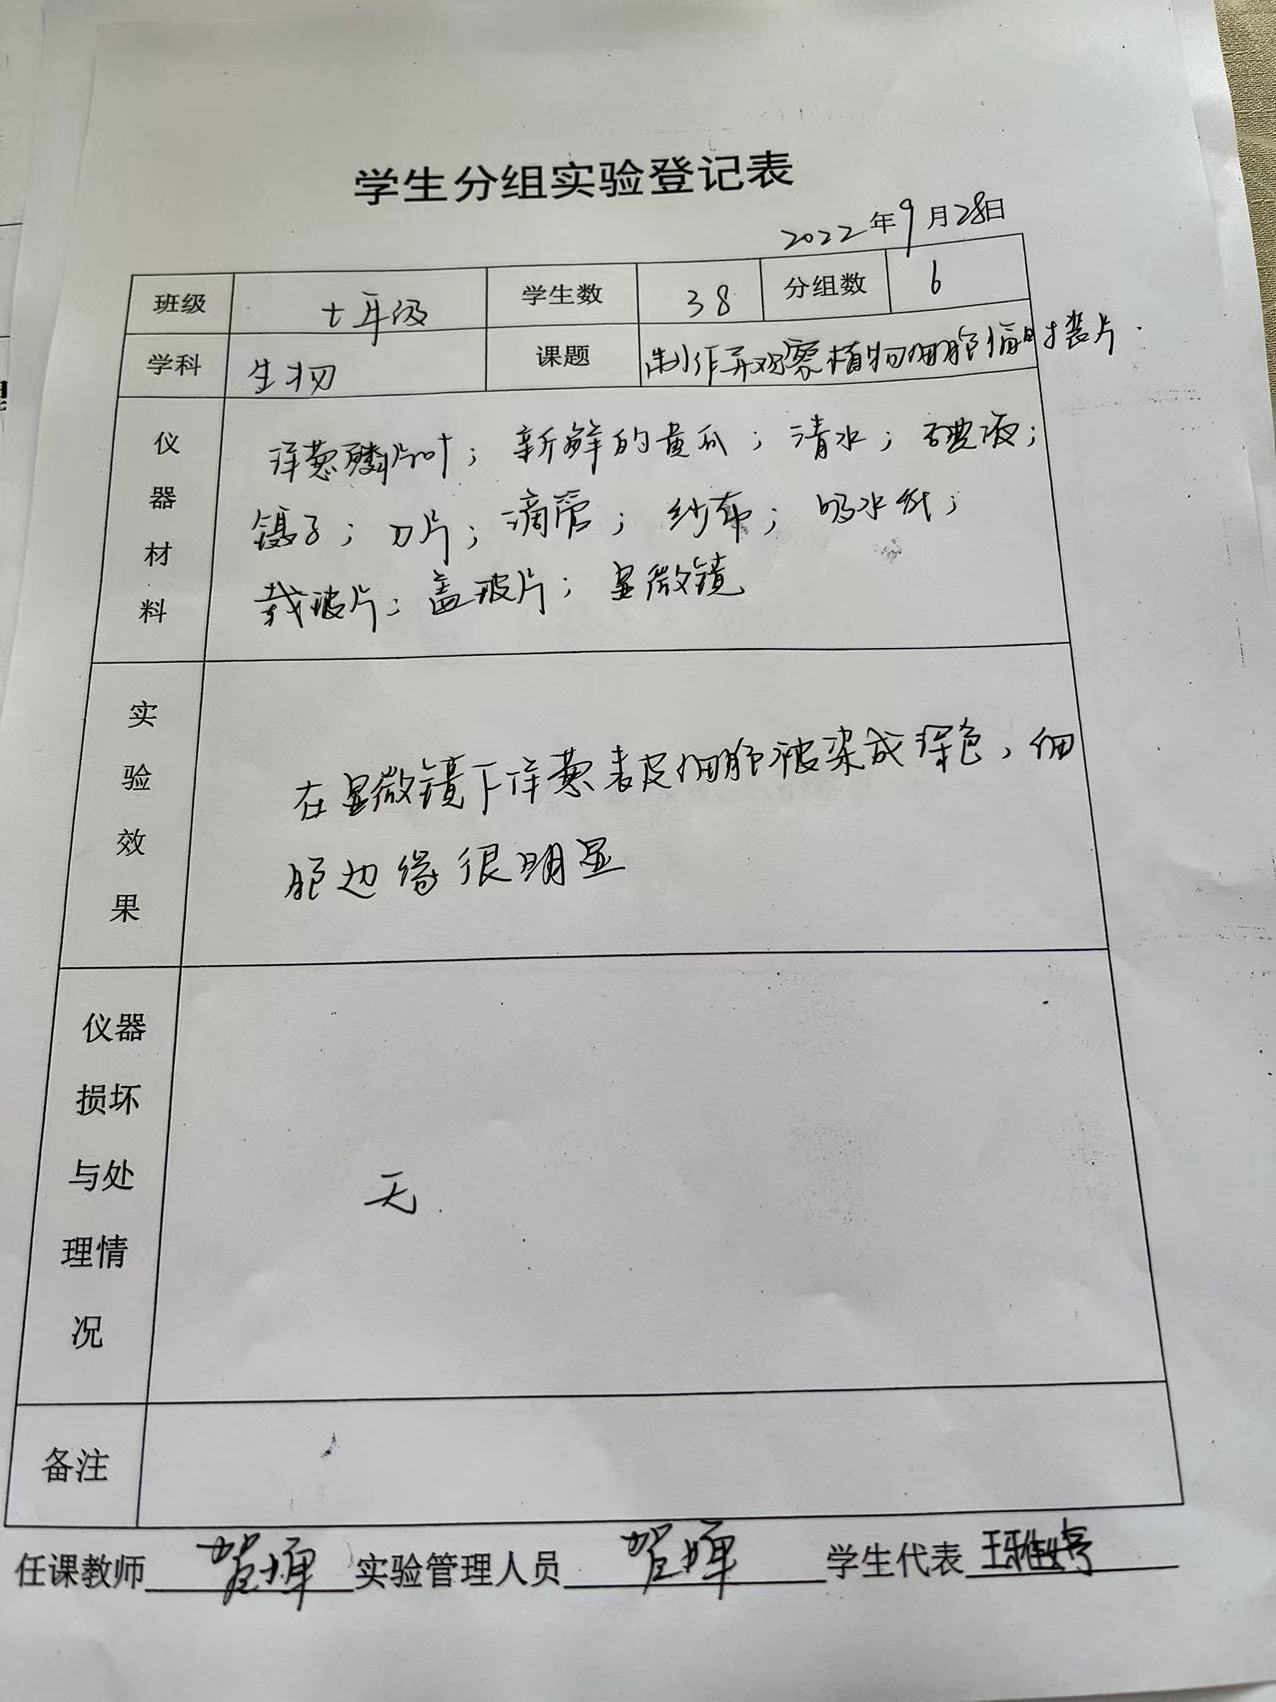 学生分组实验登记表
2022年9月28日
班级 七年级 学生数 38 分组数 6
学科 生物 课题 制作并观察植物细胞临时装片.
仪器材料
洋葱鳞片叶；新鲜的黄瓜；清水；碘液；
镊子；刀片；滴管；纱布；吸水纸；
载玻片；盖玻片；显微镜
实验效果
在显微镜下洋葱表皮细胞被染成深色，细
胞边缘很明显
仪器损坏与处理情况
无
备注
任课教师 实验管理人员 学生代表 王雅婷